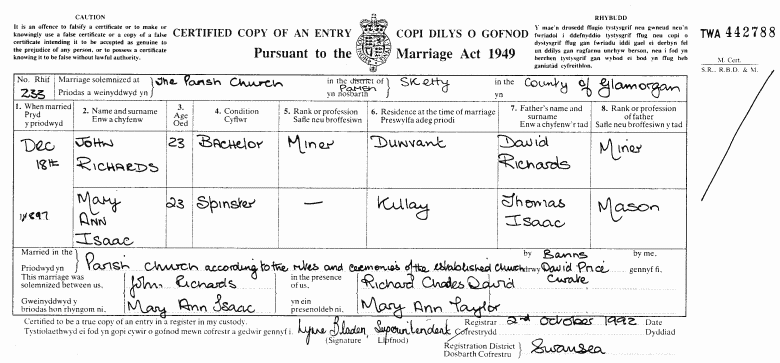 CAUTION
It is an offence to falsify a certificate or to make or
knowingly use a false certificate or a copy of a false
certificate intending it to be accepted as genuine to
the prejudice of any person, or to possess a certificate
knowing it to be false without lawful authority.
CERTIFIED COPY OF AN ENTRY
COPI DILYS O GOFNOD
Pursuant to the Marriage Act 1949
RHYBUDD
Y mae'n drosedd ffugio tystysgrif neu gwneud neu'n
fwriadol i ddefnyddio tystysgrif ffug neu copi o
dystysgrif ffug gan fwriadu iddi gael ei derbyn fel
un ddilys gan ragfarnu unrhyw berson, neu i fod yn
berchen tystysgrif gan wybod ei bod yn ffug heb
ganiatad cyfreithlon.
TWA 442788
M. Cert.
S.R., R.B.D. & M.
No. Rhif 233
Marriage solemnized at
Priodas a weinyddwyd yn
The Parish Church
in the district of
Parish
yn nosbarth
Sketty
in the
yn
County of Glamorgan
1. When married
Pryd
y priodwyd
2. Name and surname
Enw a chyfenw
3. Age
Oed
4. Condition
Cyflwr
5. Rank or profession
Safle neu broffesiwn
6. Residence at the time of marriage
Preswylfa adeg priodi
7. Father's name and
surname
Enw a chyfenw'r tad
8. Rank or profession
of father
Safle neu broffesiwn y tad
Dec
18th
1897
John
Richards
23
Bachelor
Miner
Dunvant
David
Richards
Miner
Mary
Ann
Isaac
23
Spinster
—
Killay
Thomas
Isaac
Mason
Married in the
Priodwyd yn
Parish Church according to the rites and ceremonies of the established church
by
drwy
Banns
David Price
Curate
by me.
gennyf fi.
This marriage was
solemnized between us.
Gweinyddwyd y
briodas hon rhyngom ni.
John Richards
Mary Ann Isaac
in the presence
of us.
yn ein
presenoldeb ni.
Richard Charles David
Mary Ann Taylor
Certified to be a true copy of an entry in a register in my custody.
Tystiolaethwyd ei fod yn gopi cywir o gofnod mewn cofrestr a gedwir gennyf i.
Superintendent
(Signature Llofnod)
Registrar
Cofrestrydd
2nd October 1992
Date
Dyddiad
Registration District
Dosbarth Cofrestru
Swansea